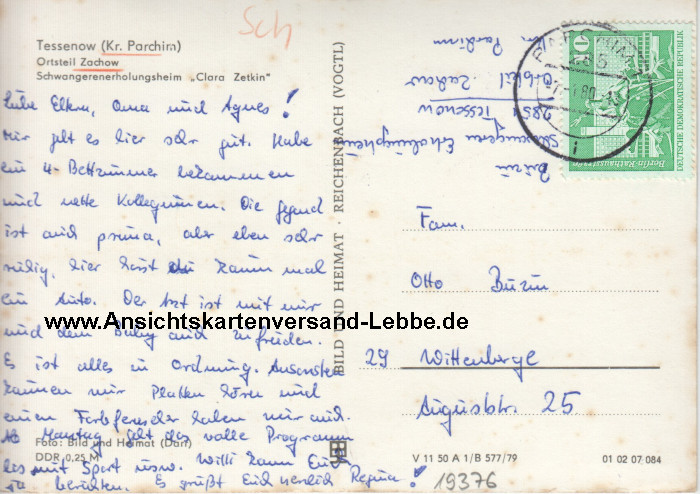 Sch
Tessenow (Kr. Parchim)
Ortsteil Zachow
Schwangerenerholungsheim „Clara Zetkin"
Liebe Eltern, Oma und Agnes!
Mir geht es hier sehr gut. Habe
ein 4-Bettzimmer bekommen
und nette Kolleginnen. Die Gegend
ist auch prima, aber eben sehr
ruhig, hier hörst du kaum mal
ein Auto. Der Arzt ist mit mir
und dem Baby auch zufrieden.
Es ist alles in Ordnung. Ansonsten
können wir Platten hören und
einen Farbfernseher haben wir auch.
Ab Montag geht das volle Programm
los mit Sport usw. Willi kann Euch
ja berichten. Es grüßt Euch herzlich Regina!
Foto: Bild und Heimat (Darr)
DDR 0,25 M
BILD UND HEIMAT · REICHENBACH (VOGTL)
Schwangeren Erholungsheim
2851 Tessenow
Ortsteil Zachow
Krs Parchim
285
80
10
DEUTSCHE DEMOKRATISCHE REPUBLIK
Berlin-Rathausstraße
Fam.
Otto
29 Wittenberge
Auguststr. 25
V 11 50 A 1/B 577/79
01 02 07 084
19376
www.Ansichtskartenversand-Lebbe.de